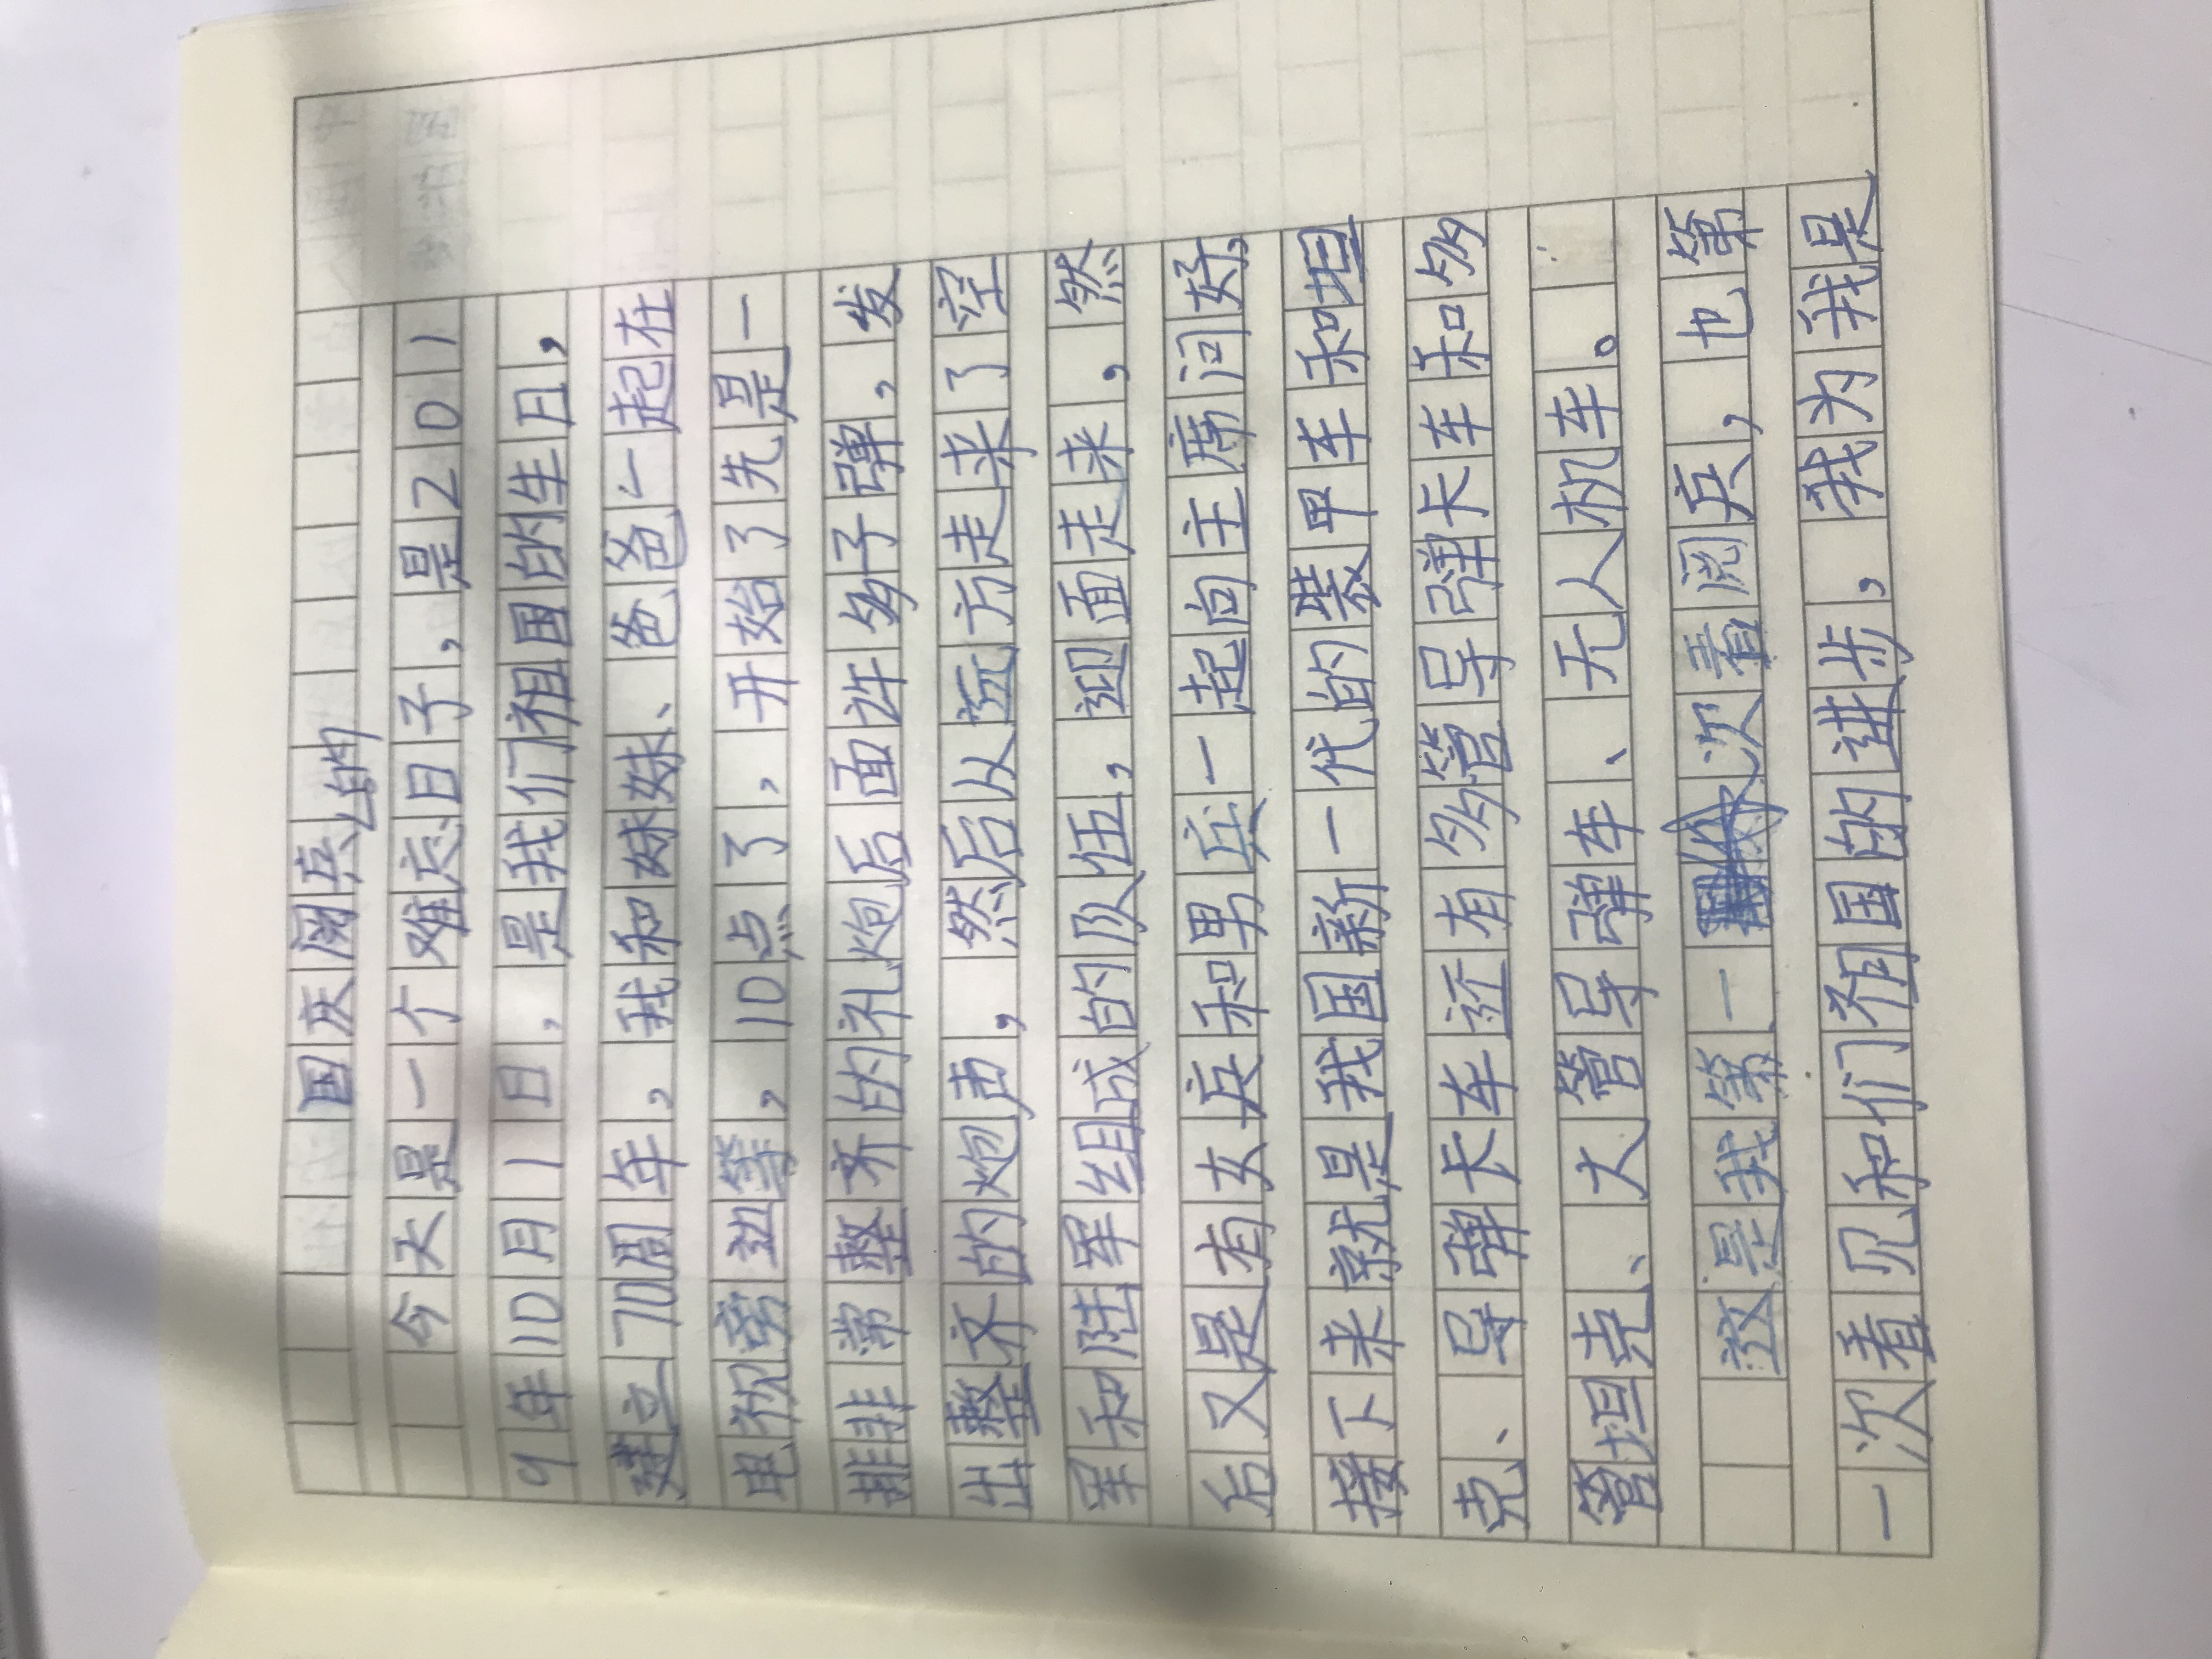 国庆阅兵的
今天是一个难忘日子，是201
9年10月1日，是我们祖国的生日，
建立70周年，我和妹妹、爸爸一起在
电视旁边等，10点了，开始了先是一
排非常整齐的礼炮后面许多子弹，发
出整齐的炮声，然后从远方走来了空
军和陆军组成的队伍，迎面走来，然
后又是有女兵和男兵一起向主席问好，
接下来就是我国新一代的装甲车和坦
克、导弹卡车还有多管导弹卡车和多
管坦克、大管导弹车、无人机车。
这是我第一次看阅兵，也第
一次看见和们祖国的进步，我为我是